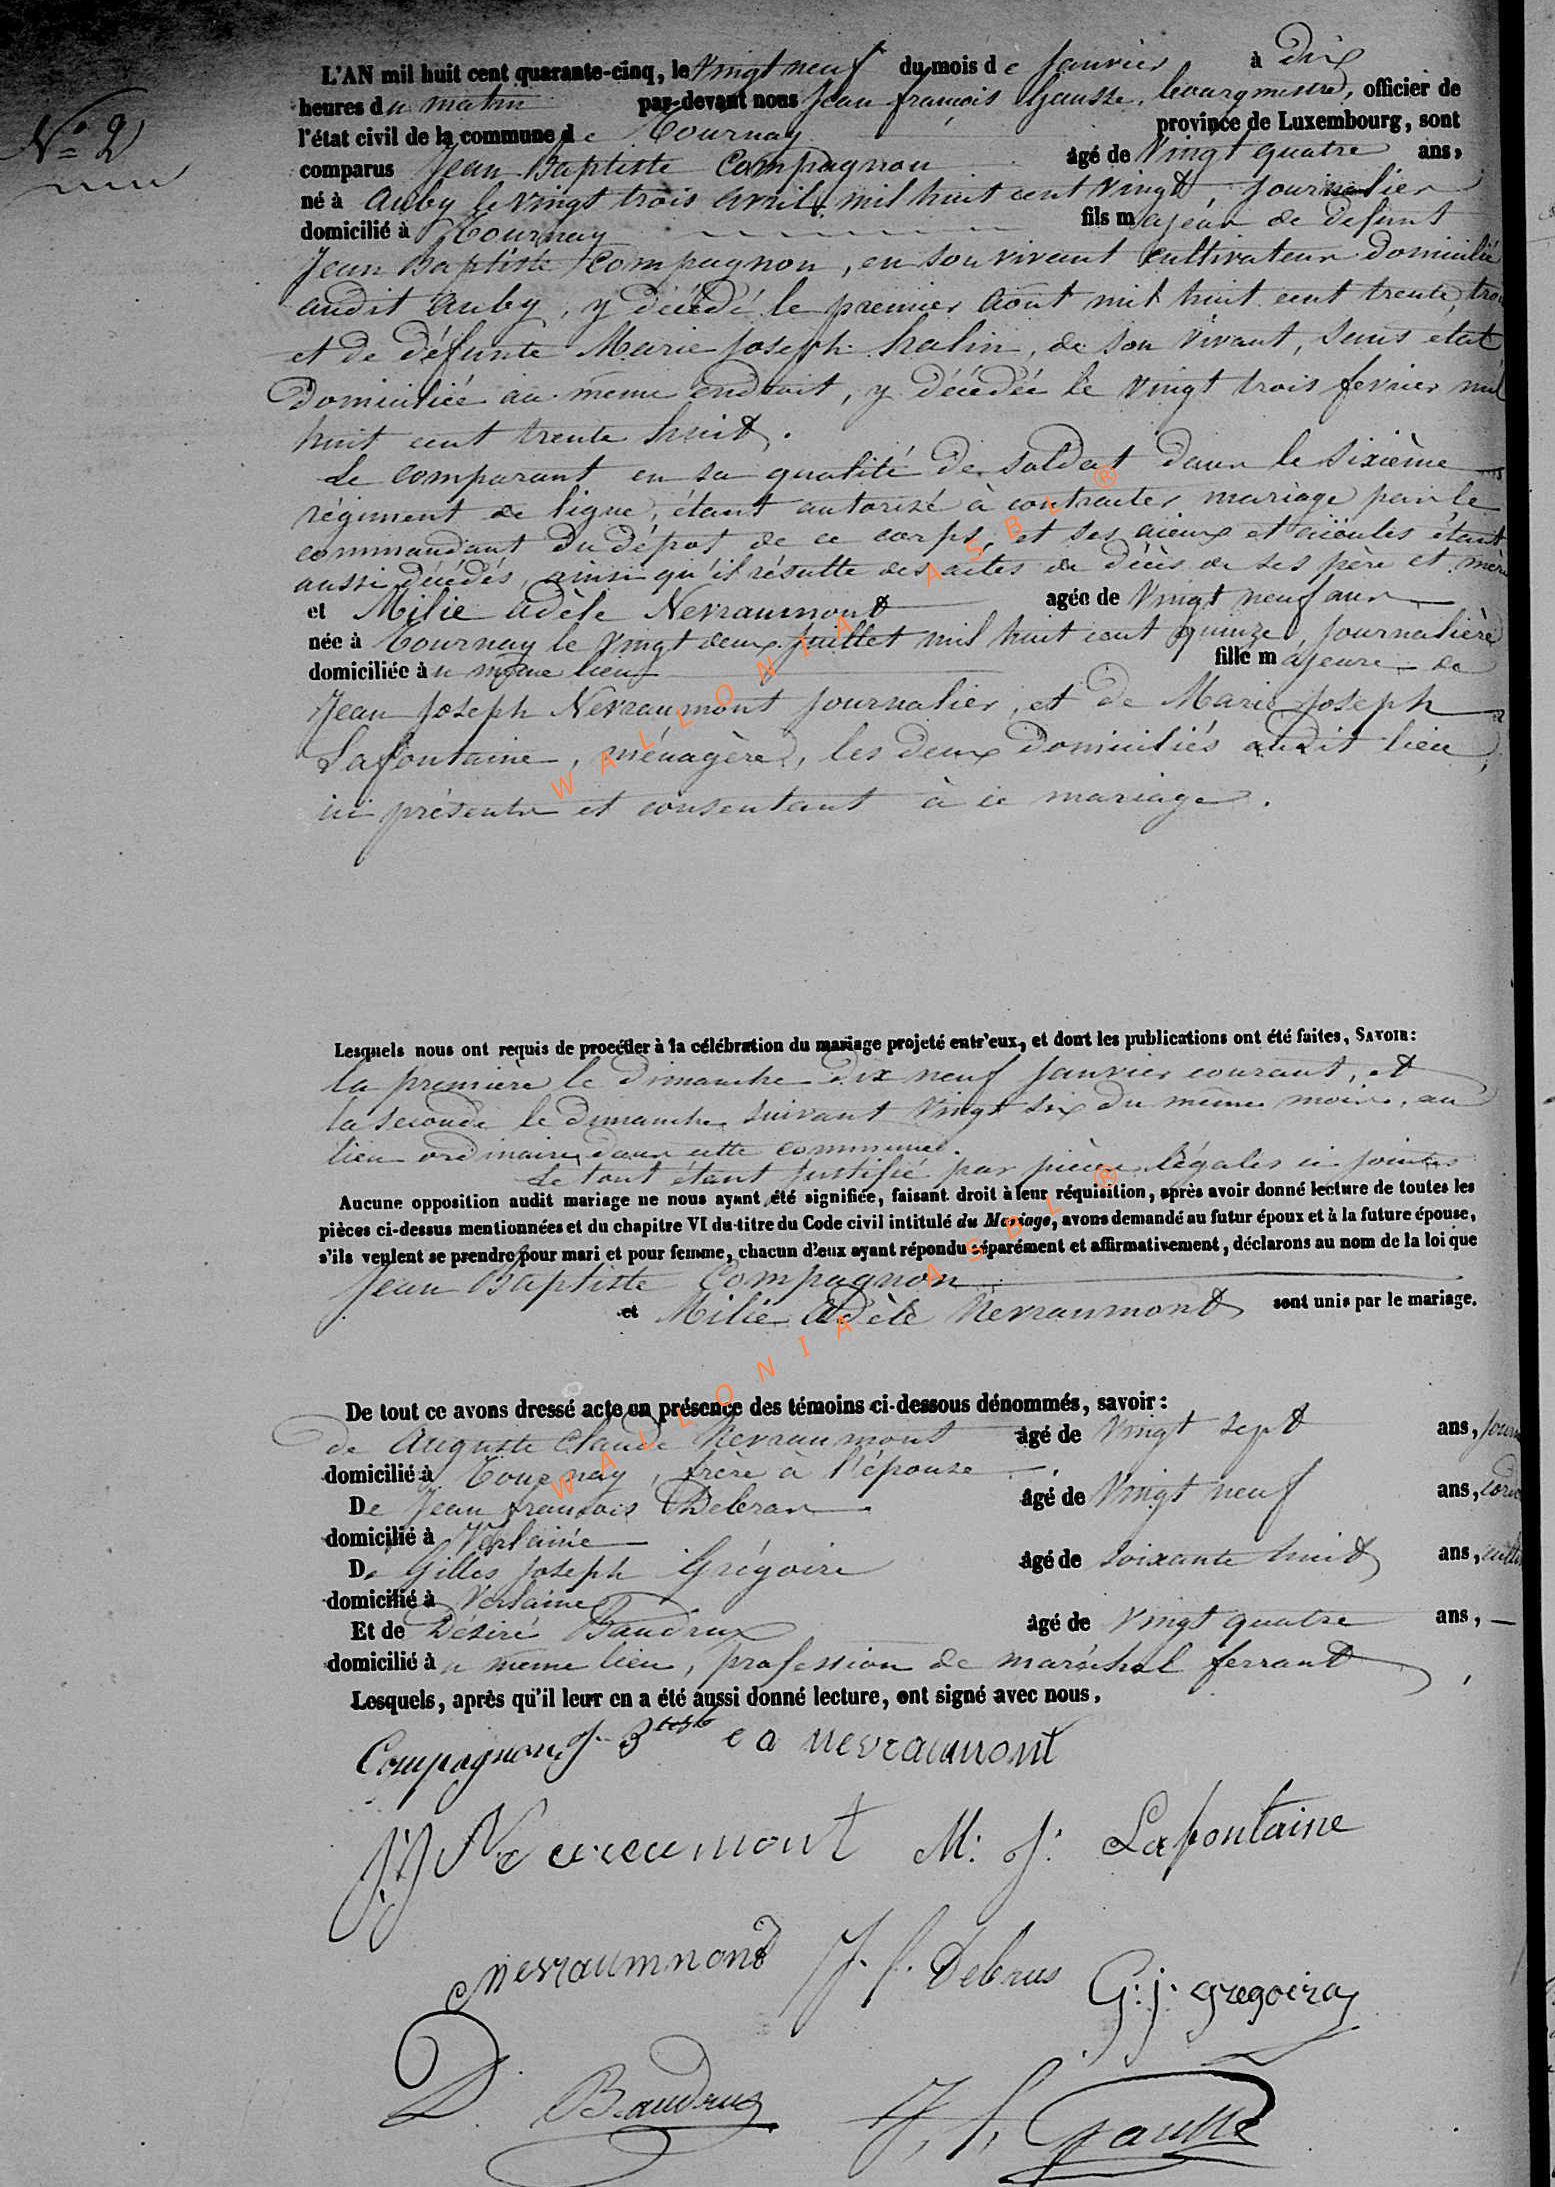 N° 2
L'AN mil huit cent quarante-cinq, le vingt neuf du mois de Janvier à Dix
heures du matin par-devant nous Jean françois Gausse, bourgmestre, officier de
l'état civil de la commune de Tournay province de Luxembourg, sont
comparus Jean Baptiste Compagnon âgé de vingt quatre ans,
né à Auby le vingt trois avril mil huit cent vingt journalier
domicilié à Tournay fils majeur de défunt
Jean Baptiste Compagnon, en son vivant cultivateur domicilié
audit Auby, y décédé le premier Août mil huit cent trente trois
et de défunte Marie Joseph halin, de son vivant, sans état
Domiciliée au même endroit, y décédée le vingt trois fevrier mil
huit cent trente huit.
Le comparant en sa qualité de soldat dans le sixième
régiment de ligne, étant autorisé à contracter mariage par le
commandant du dépot de ce corps, et ses aieux et aïeules étant
aussi décédés, ainsi qu'il résulte des actes de décès de ses père et mère
et Milie Adèle Nevraumont agée de vingt neuf ans
née à Tournay le vingt deux Juillet mil huit cent quinze, journalière
domiciliée au même lieu fille majeure de
Jean Joseph Nevraumont journalier, et de Marie Joseph
Lafontaine, ménagère, les deux domiciliés audit lieu,
ici présents et consentant à ce mariage.
Lesquels nous ont requis de procéder à la célébration du mariage projeté entr'eux, et dont les publications ont été faites, SAVOIR:
la première le dimanche dix neuf Janvier courant, et
la seconde le dimanche suivant vingt six du même mois, au
lieu ordinaire dans cette commune.
Le tout étant justifié par pièces légales ci jointes
Aucune opposition audit mariage ne nous ayant été signifiée, faisant droit à leur réquisition, après avoir donné lecture de toutes les
pièces ci-dessus mentionnées et du chapitre VI du titre du Code civil intitulé du Mariage, avons demandé au futur époux et à la future épouse,
s'ils veulent se prendre pour mari et pour femme, chacun d'eux ayant répondu séparément et affirmativement, déclarons au nom de la loi que
Jean Baptiste Compagnon
et Milie Adèle Nevraumont sont unis par le mariage.
De tout ce avons dressé acte en présence des témoins ci-dessous dénommés, savoir:
de Auguste Claude Nevraumont âgé de vingt sept ans, journ
domicilié à Tournay, frère à l'épouse
De Jean françois Debras âgé de vingt neuf ans,
domicilié à Verlaine
De Gilles Joseph Grégoire âgé de soixante huit ans, culti
domicilié à Verlaine
Et de Désiré Baudrux âgé de vingt quatre ans, —
domicilié au même lieu, profession de maréchal ferrant,
Lesquels, après qu'il leur en a été aussi donné lecture, ont signé avec nous.
Compagnon J. Btiste e a nevraumont
JJ Nevraumont M: J: Lafontaine
nevraumnont J. f. Debras G: j: gregoire
D. Baudrux J. f. Gausse
WALLONIA ASBL ®
WALLONIA ASBL ®